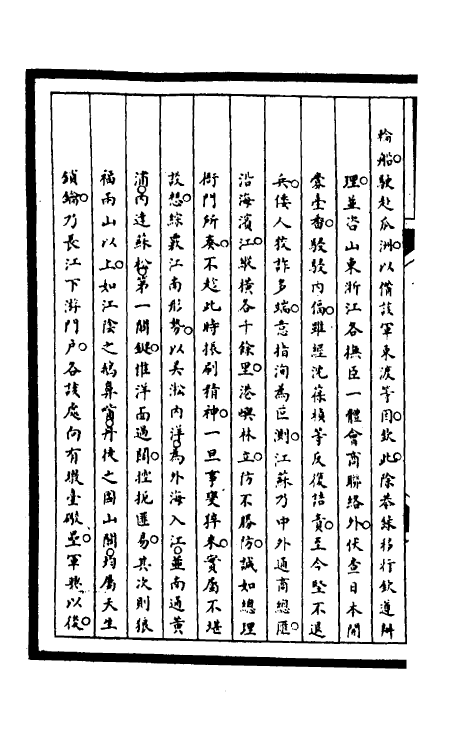 輪船駛赴瓜洲以備該軍東渡等因欽此除恭錄移行欽遵辦
理並咨山東浙江各撫臣一體會商聯絡外伏查日本開
釁臺番駸駸內偪雖經沈葆楨等反復詰責至今堅不退
兵倭人狡詐多端意指洵為叵測江蘇乃中外通商總匯
沿海濱江縱橫各千餘里港嶼林立防不勝防誠如總理
衙門所奏不趁此時振刷精神一旦事變猝來實屬不堪
設想綜覈江南形勢以吳淞內洋為外海入江並南通黃
浦內達蘇松第一關鍵惟洋面過闊控扼匪易其次則狼
福兩山以上如江陰之鵝鼻嘴丹徒之圌山關均屬天生
鎖鑰乃長江下游門戶各該處向有礮臺礮壘軍興以後